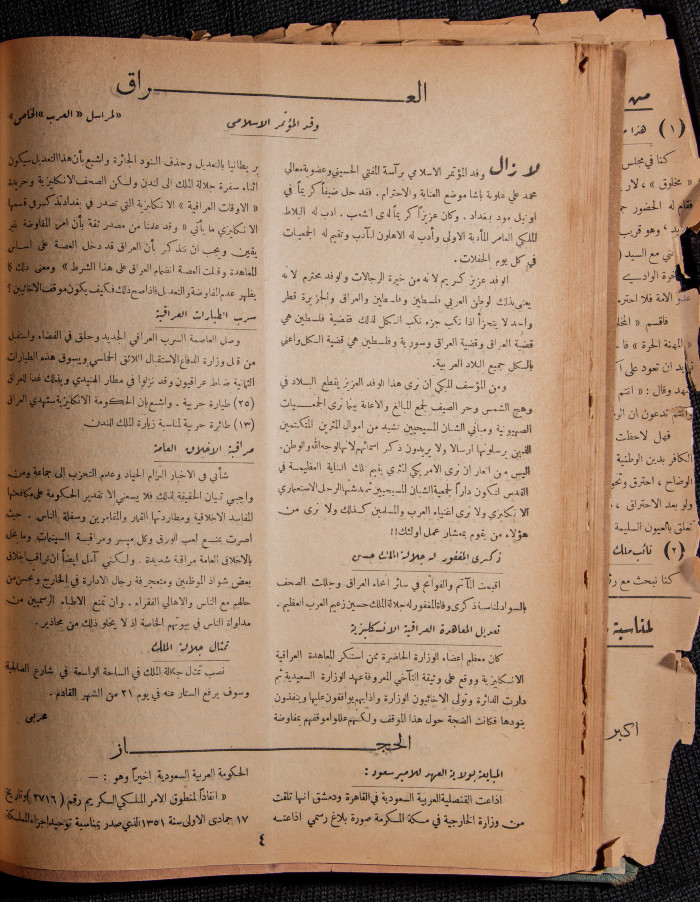 العـــراق
لمراسل «العرب» الخاص
وفد المؤتمر الاسلامي
لا زال وفد المؤتمر الاسلامي برآسة المفتي الحسيني وعضوية معالي
محمد علي علوبة باشا موضع العناية والاحترام. فقد حل ضيفاً كريماً في
اوتيل مود بغداد. وكان عزيزاً كريماً لدى الشعب. ادب له البلاط
الملكي العامر المأدبة الاولى وأدب له الاهلون المآدب وتقيم له الجمعيات
في كل يوم الحفلات.
الوفد عزيز كريم لانه من خيرة الرجالات والوفد محترم لانه
يعنى بذلك الوطن العربي فلسطين وفلسطين والعراق والجزيرة قطر
واحد لا يتجزأ اذا نكب جزء نكب الكل لذلك فقضية فلسطين هي
قضية العراق وقضية العراق وسورية وفلسطين هي قضية الكل واعني
بالكل جميع البلاد العربية.
ومن المؤسف المبكي ان نرى هذا الوفد العزيز يقطع البلاد في
وهج الشمس وحر الصيف لجمع المبالغ والاعانة بينما نرى الجمعيات
الصهيونية ومباني الشبان المسيحيين تشيد من اموال المثرين المتكتمين
الذين يرسلونها ارسالا ولا يريدون ذكر اسمائهم لانها لوجه الله والوطن.
اليس من العار ان نرى الامريكي المثري يقيم تلك البناية العظيمة في
القدس لتكون داراً لجمعية الشبان المسيحيين ثم يدشنها الرحل الاستعماري
الانكليزي ولا نرى اغنياء العرب والمسلمين كذلك ولا نرى من
هؤلاء من يقوم بمعشار عمل اولئك!!
ذكرى المغفور له جلالة الملك حسين
اقيمت المآتم والفواتح في سائر أنحاء العراق وجللت الصحف
بالسواد لمناسبة ذكرى وفاة المغفور له جلالة الملك حسين زعيم العرب العظيم.
تعديل المعاهدة العراقية الانكليزية
كان معظم اعضاء الوزارة الحاضرة ممن استنكر المعاهدة العراقية
الانكليزية ووقع على وثيقة التآخي المعروفة عهد الوزارة السعيدية ثم
دارت الدائرة وتولى الاخائيون الوزارة واذا بهم يوافقون عليها وينفذون
بنودها فكانت الضجة حول هذا الموقف ولكنهم عللوا موقفهم بمفاوضة
بريطانيا بالتعديل وحذف البنود الجائرة واشيع بأن هذا التعديل سيكون
اثناء سفرة جلالة الملك الى لندن ولكن الصحف الانكليزية وجريدة
«الاوقات العراقية» الانكليزية التي تصدر في بغداد تذكر في قسمها
الانكليزي ما يأتي «وقد علمنا من مصدر ثقة بأن امر المفاوضة غير
يقين ويجب ان نتذكر بأن العراق قد دخل العصبة على اساس
المعاهدة وقبلت العصبة انضمام العراق على هذا الشرط» ومعنى ذلك كما
يظهر عدم المفاوضة والتعديل فاذا صح ذلك فكيف يكون موقف الاخائيين؟
سرب الطيارات العراقية
وصل العاصمة السرب العراقي الجديد وحلق في الفضاء واستقبل
من قبل وزارة الدفاع الاستقبال اللائق الحماسي ويسوق هذه الطيارات
الثمانية ضباط عراقيون وقد نزلوا في مطار الهنيدي وبذلك غدا للعراق
(٢٥) طيارة حربية. واشيع بأن الحكومة الانكليزية ستهدي العراق
(١٣) طائرة حربية لمناسبة زيارة الملك للندن
مراقبة الاخلاق العامة
شأني في الاخبار التزام الحياد وعدم التحزب الى جماعة ومن
واجبي تبيان الحقيقة لذلك فلا يسعني الا تقدير الحكومة على مكافحتها
المفاسد الاخلاقية ومطاردتها القمار والمقامرين وسفلة الناس. حيث
امرت بمنع لعب الورق وكل ميسر ومراقبة السينمات وما يخل
بالاخلاق العامة مراقبة شديدة. ولكنني آمل ايضاً ان تراقب اخلاق
بعض شواذ الموظفين ومتعجرفة رجال الادارة في الخارج وتحسن من
حالهم مع الناس والاهالي الفقراء. وان تمنع الاطباء الرسميين من
مداواة الناس في بيوتهم الخاصة اذ لا يخلو ذلك من محاذير.
تمثال جلالة الملك
نصب تمثال جلالة الملك في الساحة الواسعة في شارع الصالحية
وسوف يرفع الستار عنه في يوم ٢١ من الشهر القادم.
عربي
الحجـــاز
المبايعة لولاية العهد للامير سعود:
اذاعت القنصلية العربية السعودية في القاهرة ودمشق انها تلقت
من وزارة الخارجية في مكة المكرمة صورة بلاغ رسمي اذاعته
الحكومة العربية السعودية اخيراً وهو: —
«انفاذاً لمنطوق الامر الملكي الكريم رقم (٢٧١٦) وتاريخ
١٧ جمادى الاولى سنة ١٣٥١ الذي صدر بمناسبة توحيد اجزاء المملكة
٤
(١) هذا
كنا في مجلس
(٢)
كنا نبحث مع
لمناسبة
اكبر